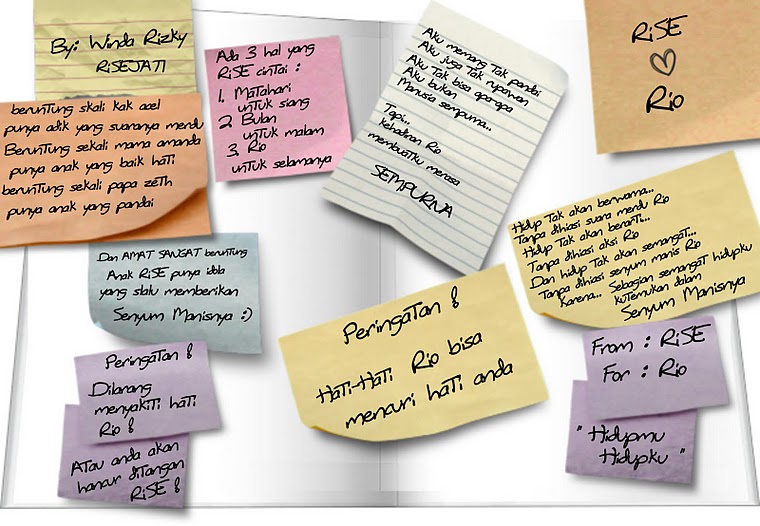 By: Winda Rizky
RiSEJATI
beruntung skali kak acel
punya adik yang suaranya merdu
Beruntung sekali mama amanda
punya anak yang baik hati
beruntung sekali papa zeth
punya anak yang pandai
Dan AMAT SANGAT beruntung
Anak RiSE punya idola
yang slalu memberikan
Senyum Manisnya :)
Peringatan !
Dilarang
menyakiti hati
Rio !
Atau anda akan
hancur ditangan
RiSE !
Ada 3 hal yang
RiSE cintai :
1. Matahari
untuk siang
2. Bulan
untuk malam
3. Rio
untuk selamanya
Aku memang Tak pandai
Aku juga Tak rupawan
Aku Tak bisa apa-apa
Aku bukan
Manusia sempurna..
Tapi..
kehadiran Rio
membuatku merasa
SEMPURNA
Peringatan !
Hati-Hati Rio bisa
mencuri hati anda
RiSE
♡
Rio
Hidup Tak akan berwarna...
Tanpa dihiasi suara merdu Rio
Hidup Tak akan berarti...
Tanpa dihiasi aksi Rio
Dan hidup Tak akan semangat...
Tanpa dihiasi senyum manis Rio
Karena... Sebagian semangat hidupku
kutemukan dalam
Senyum Manisnya
From : RiSE
For : Rio
" Hidupmu
Hidupku "